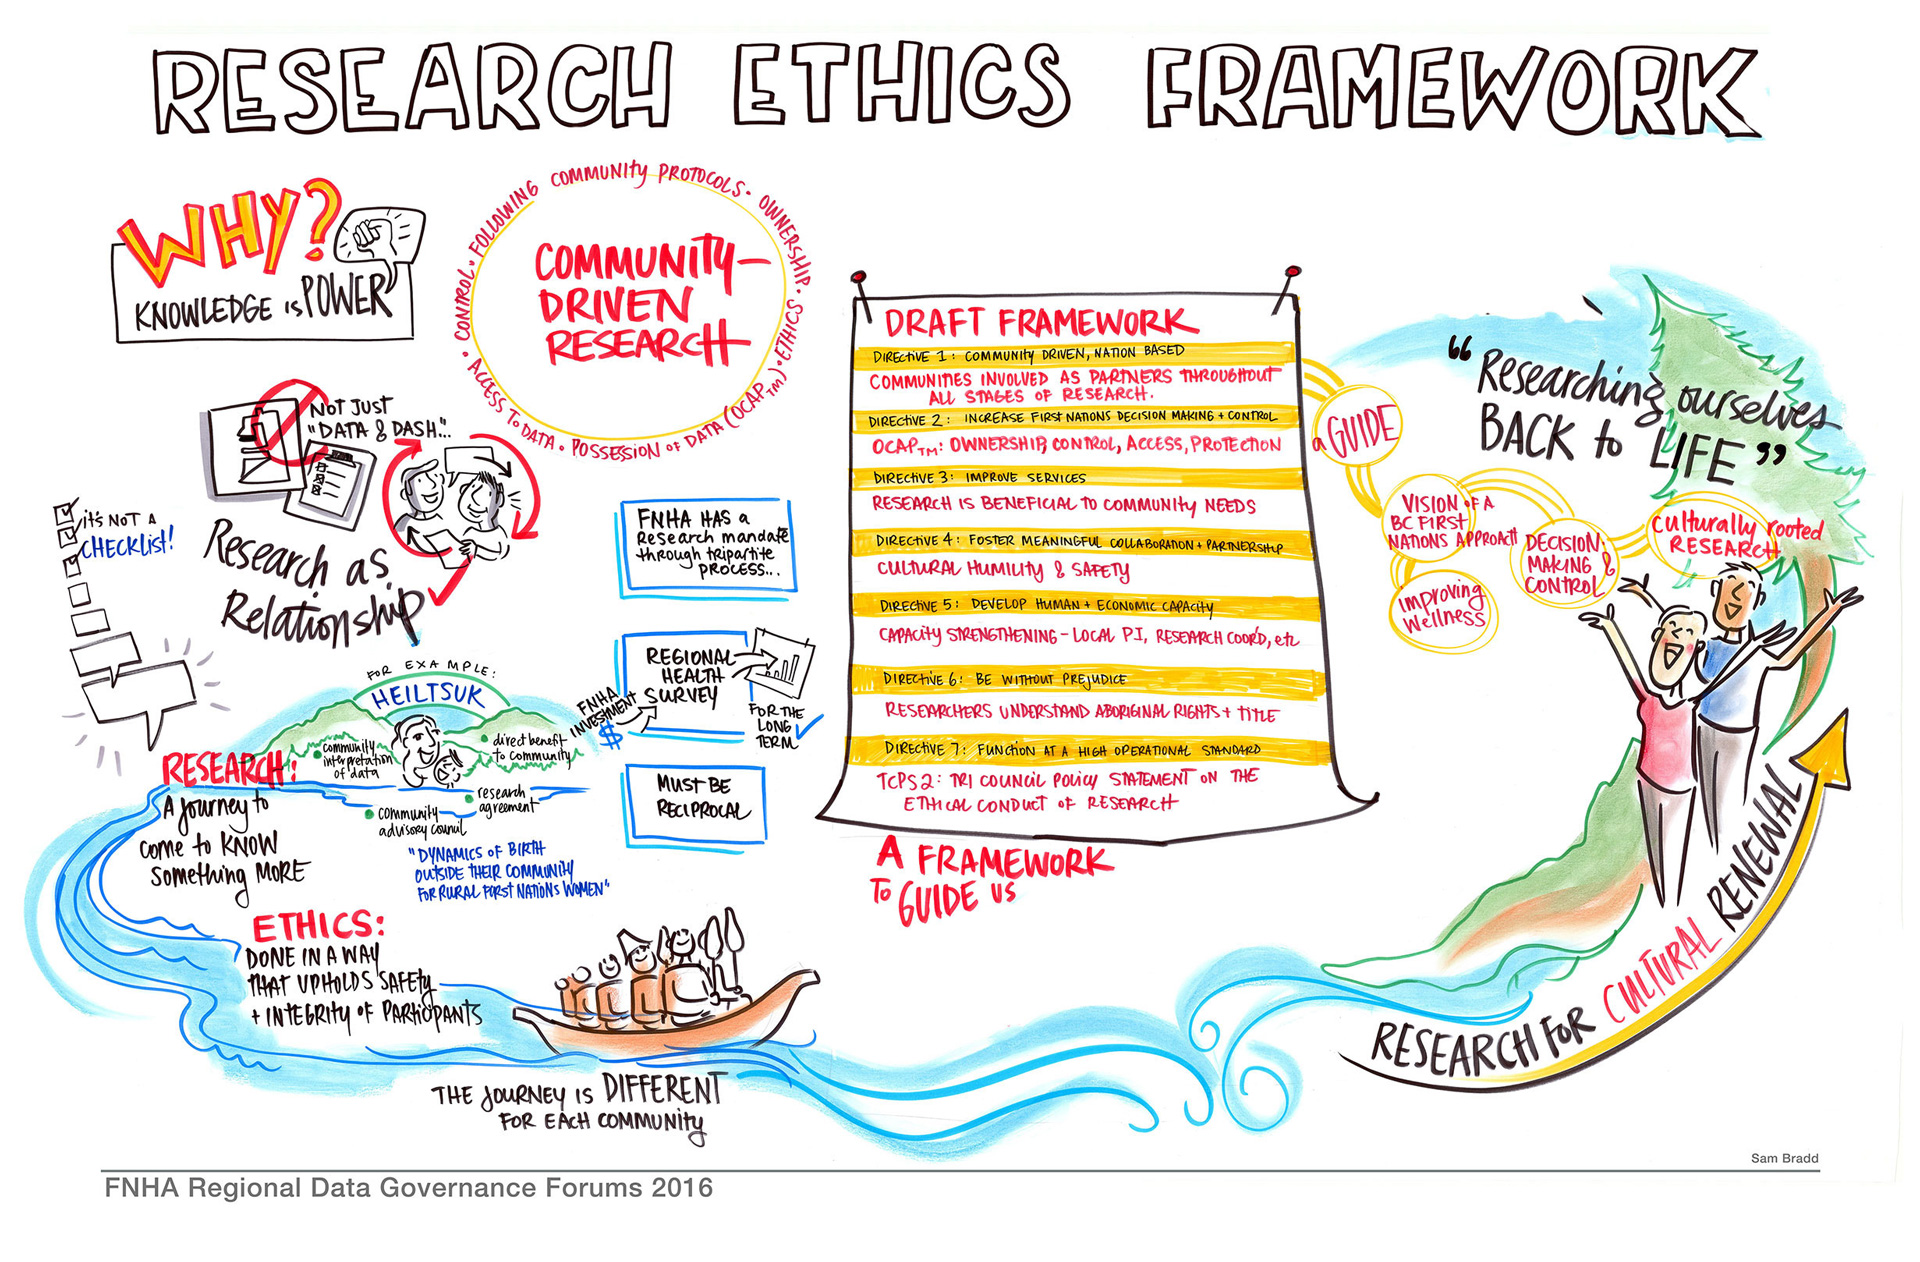 RESEARCH ETHICS FRAMEWORK
WHY?
KNOWLEDGE is POWER
COMMUNITY-
DRIVEN
RESEARCH
FOLLOWING COMMUNITY PROTOCOLS • OWNERSHIP • ETHICS • POSSESSION OF DATA (OCAP™) • ACCESS TO DATA • CONTROL •
NOT JUST
"DATA & DASH"...
it's NOT A
CHECKLIST!
Research as
Relationship
FNHA HAS a
Research mandate
through tripartite
PROCESS...
FNHA
INVESTMENT
$
REGIONAL
HEALTH
SURVEY
FOR THE
LONG
TERM
MUST BE
RECIPROCAL
FOR EXAMPLE:
HEILTSUK
community
interpretation
of data
direct benefit
to community
research
agreement
community
advisory council
"DYNAMICS OF BIRTH
OUTSIDE THEIR COMMUNITY
FOR RURAL FIRST NATIONS WOMEN"
RESEARCH:
A journey to
come to KNOW
something MORE
ETHICS:
DONE IN A WAY
THAT UPHOLDS SAFETY
+ INTEGRITY OF PARTICIPANTS
THE JOURNEY IS DIFFERENT
FOR EACH COMMUNITY
DRAFT FRAMEWORK
DIRECTIVE 1: COMMUNITY DRIVEN, NATION BASED
COMMUNITIES INVOLVED AS PARTNERS THROUGHOUT
ALL STAGES OF RESEARCH.
DIRECTIVE 2: INCREASE FIRST NATIONS DECISION MAKING + CONTROL
OCAP™: OWNERSHIP, CONTROL, ACCESS, PROTECTION
DIRECTIVE 3: IMPROVE SERVICES
RESEARCH IS BENEFICIAL TO COMMUNITY NEEDS
DIRECTIVE 4: FOSTER MEANINGFUL COLLABORATION + PARTNERSHIP
CULTURAL HUMILITY & SAFETY
DIRECTIVE 5: DEVELOP HUMAN + ECONOMIC CAPACITY
CAPACITY STRENGTHENING - LOCAL PI, RESEARCH COORD, etc
DIRECTIVE 6: BE WITHOUT PREJUDICE
RESEARCHERS UNDERSTAND ABORIGINAL RIGHTS + TITLE
DIRECTIVE 7: FUNCTION AT A HIGH OPERATIONAL STANDARD
TCPS 2: TRI COUNCIL POLICY STATEMENT ON THE
ETHICAL CONDUCT OF RESEARCH
A FRAMEWORK
TO GUIDE US
a GUIDE
VISION OF A
BC FIRST
NATIONS APPROACH
improving
Wellness
DECISION-
MAKING &
CONTROL
culturally rooted
RESEARCH
"Researching ourselves
BACK to LIFE"
RESEARCH FOR CULTURAL RENEWAL
Sam Bradd
FNHA Regional Data Governance Forums 2016